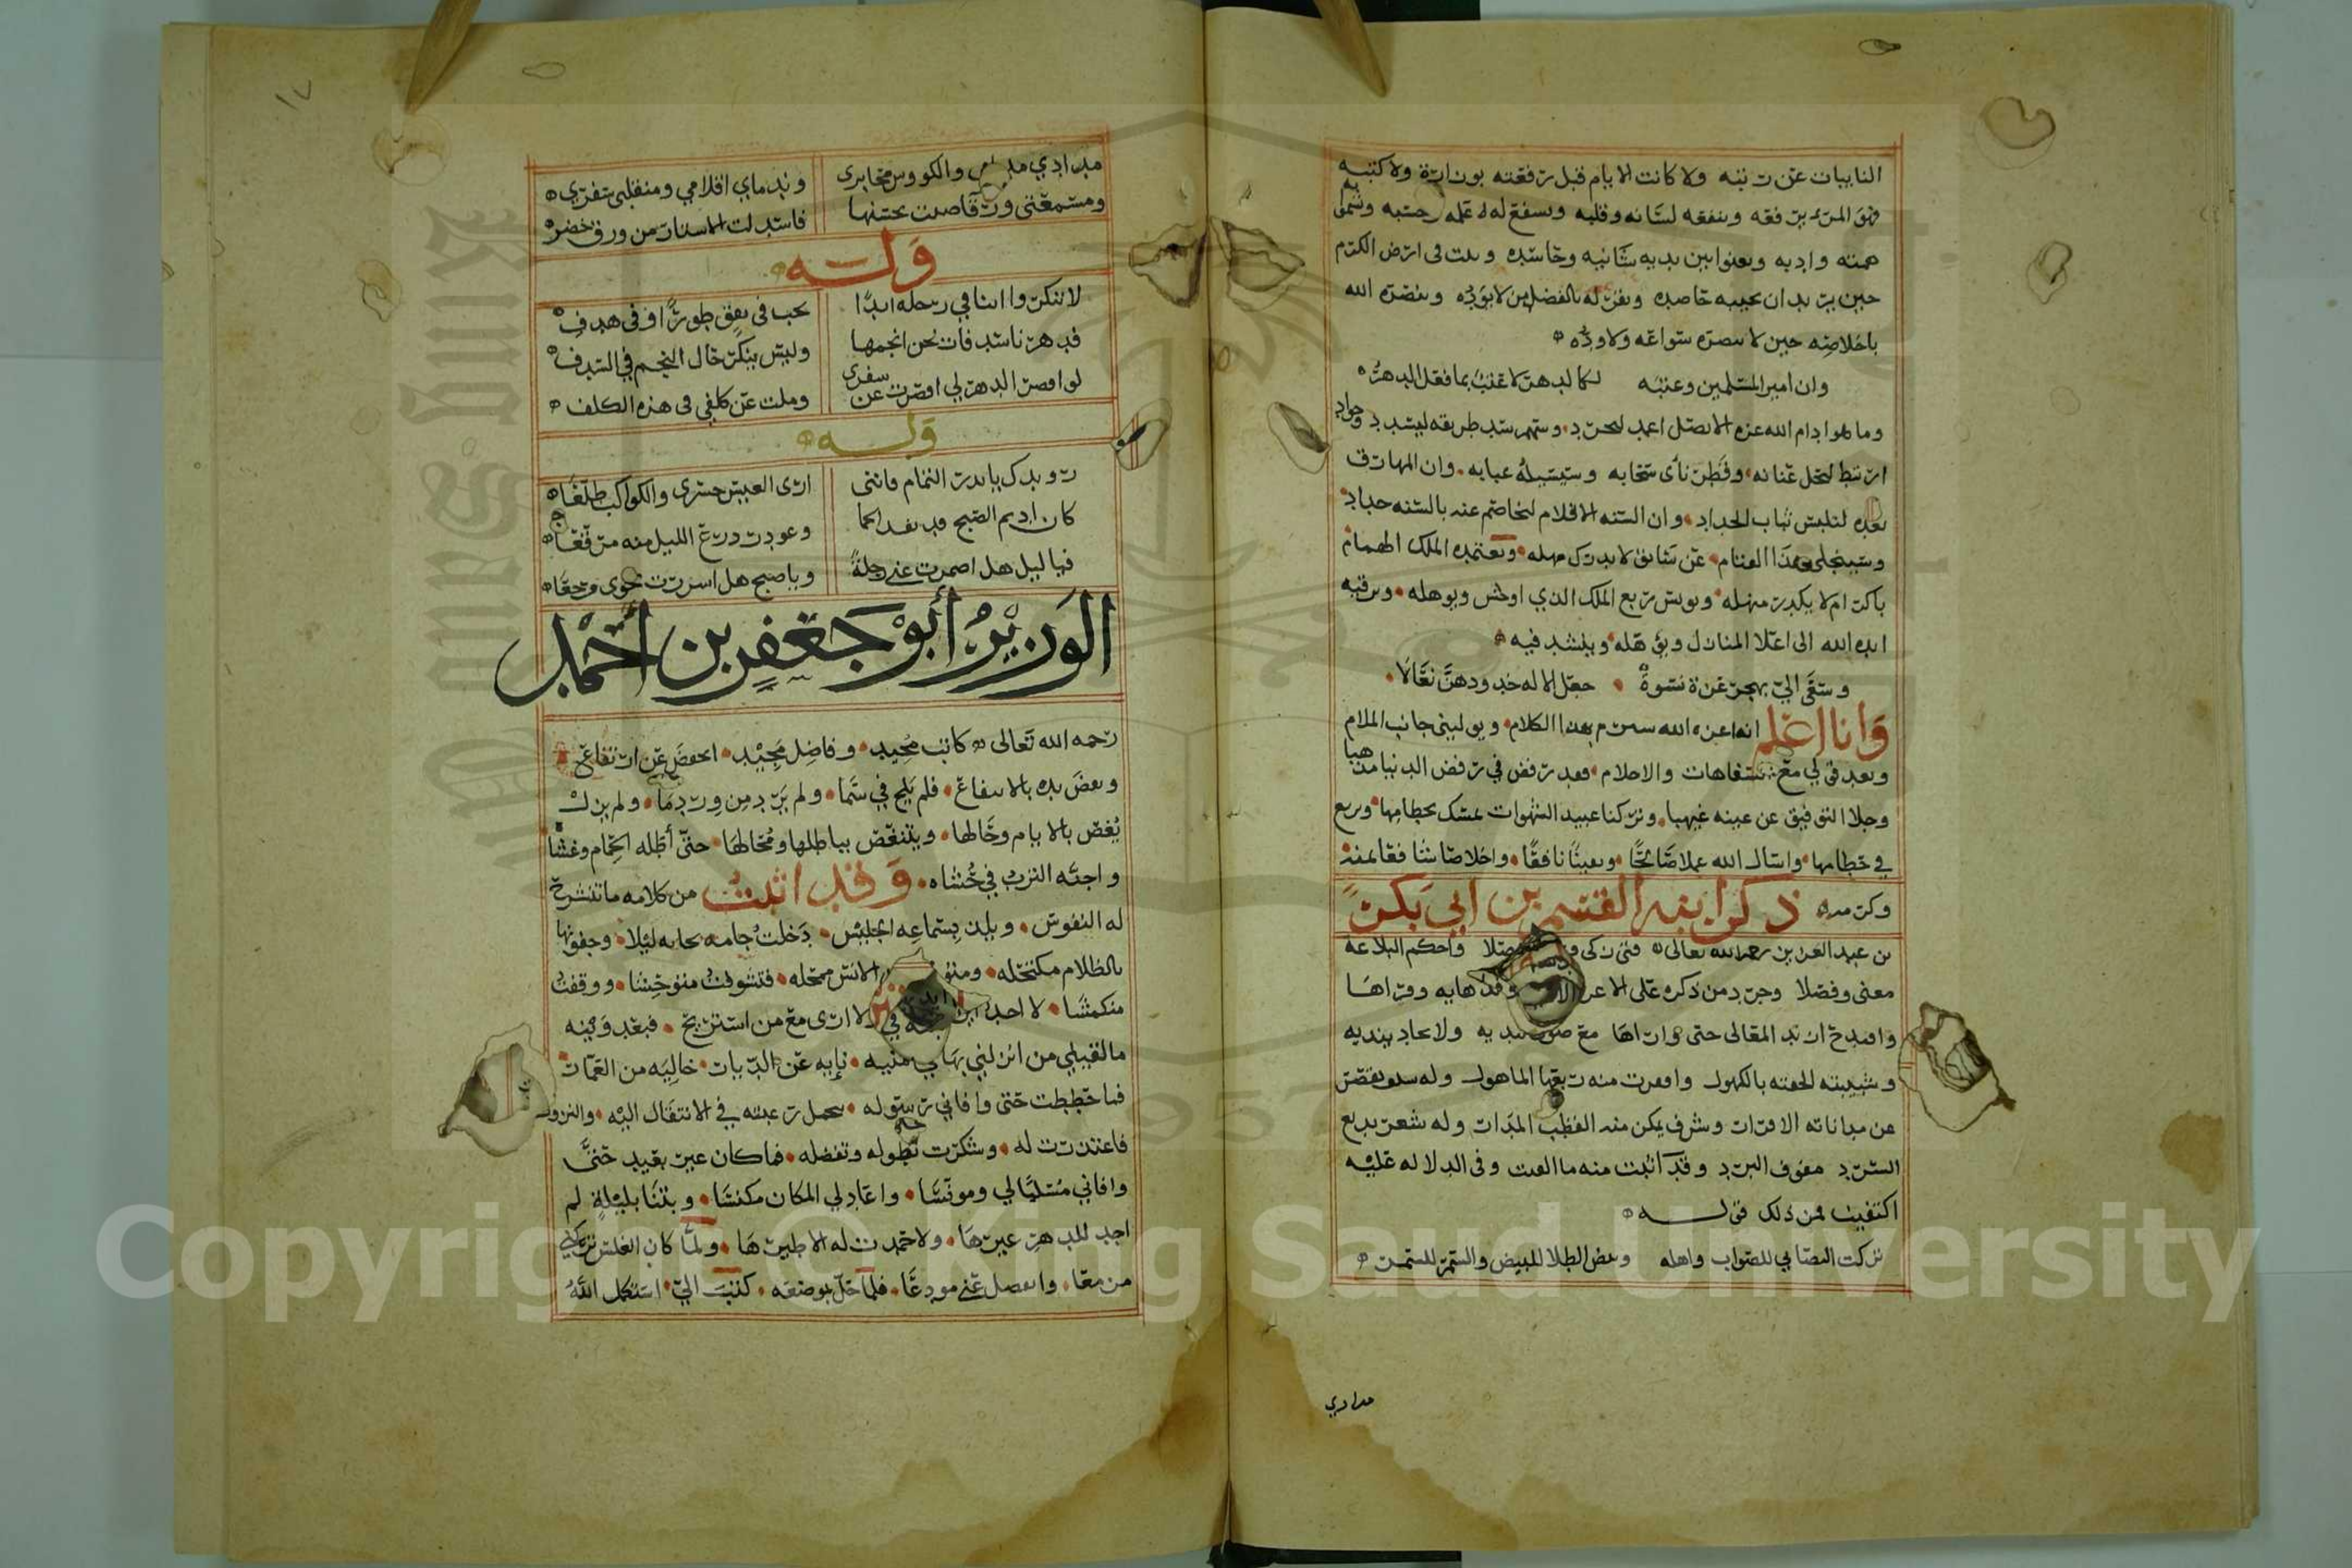 النايبات عن رتبه ولا كانت الايام قبل رفعته بوزارة ولا كتبه
فهو المرء يرفعه وينفعه لسانه وقلبه ويشفع له علمه حسبه وتسمو به
همته وادبه ويعنوا بين يديه شانيه وحاسده وينبت في ارض الكرم
حين يريد ان يجيبه حاصده ويقر له بالفضل من لا يوده وينصره الله
باخلاصه حين لا ينصره سواعه ولا وده
وان امير المسلمين وعتبه لكالدهر لا عتب بما فعل الدهر
وما هوا دام الله عزه الا نصل اغمد ليجرد وسهم سدد طريقه ليسدد وجواد
ارتبط لتخل عنانه وقطر نأى سحابه وسيسيله عبابه وان المهارق
بعده لتلبس ثياب الحداد وان السنه الاقلام لتخاصم عنه بالسنه حداد
وسينجلي هذا القتام عن سابق لا يدرك مهله ويعتمده الملك الهمام
باكرام لا يكدر منهله ويونس ربع الملك الذي اوحش ويوهله ويرقيه
ايده الله الى اعلا المنازل ويؤهله وينشد فيه
وسعى الي بهجر عزة نسوة جعل الاله خدودهن نعالا
وانا اعلم انه اعزه الله سيبرم بهذا الكلام ويوليني جانب الملام
ويعد قولي مع السفاهات والاحلام فقد رفض في رفض الدنيا مذهبا
وجلا التوفيق عن عينه غيهبا وتركنا عبيد الشهوات نمسك بحطامها ونرتع
في خطامها واسال الله عملا صالحا ويقينا نافعا واخلاصا شافعا بمنه
وكرمه ذكر ابنه القسم بن ابي بكر
بن عبد العزيز رحمه الله تعالى فتى زكى واحكم البلاغه
معنى وفصلا وجرد من ذكره على الاعراض
واقتدح زند المقالى حتى وراها ولا عاد ينديه
وشبيبته لحقته بالكهول واقفرت منه ربعها الماهول وله سلف تقصر
عن مباناته الافراد وشرف يمكن منه القطب المدات وله شعر بديع
السرد مفوف البرد وقد اثبت منه ما الفيت وفي الدلاله عليه
اكتفيت فمن ذلك قوله
تركت التصابي للصواب واهله وبيض الطلا للبيض والسمر للسمر
مدادي
١٧
مدادي والكووس محابرى وندماي اقلامي ومنقلبى سفري
ومسمعتى ورقا ضنت بحسنها فاسدلت الاستار من ورق خضر
وله
لا تنكروا اننا في رحله ابدا نحب في نفنق طورا وفى هدف
فدهرنا سدفات نحن انجمها وليس ينكر حال النجم في السدف
لو اقصر الدهر لي اقصرت عن سفرى وملت عن كلفي فى هذه الكلف
وله
رويدك يا بدر التمام فاننى ارى العيس حسرى والكواكب طلعا
كان اديم الصبح قد قد انجما وعودر درع الليل منه مرقعا
فيا ليل هل اضمرت عني رحلة ويا صبح هل اسررت نحوى مرجعا
الوزير أبو جعفر بن احمد
رحمه الله تعالى كاتب مجيد وفاضل مجيد انخفض عن ارتفاع
ونفض يده بالانتفاع فلم يلج في سما ولم يرد من ورد ما ولم يزل
يغص بالايام وحالها ويتنغص بباطلها ومحالها حتى أظله الحمام وغشاه
واجنه الترب في حشاه وقد اثبت من كلامه ما تنشرح
له النفوس ويلذ بسماعه الجليس دخلت جامه بجايه ليلا وجفونها
بالظلام مكتحله الانس ممحله فتشوفت متوحشا ووقفت
منكمشا لا اجد لا ارى مع من استريح فبعد وهنه
ما لقيني من انزلني بها منيه نايه عن الديات خاليه من العمات
فما حططت حتى وافاني رسوله يحمل رغبته في الانتقال اليه والنزول
فاعتذرت له وشكرت تطوله وتفضله فما كان غير بعيد حتى
وافاني مسليا لي ومونسا واعاد لي المكان مكنسا وبتنا بليلة لم
اجد للدهر غيرها ولا حمدت له الا طيرها ولما كان الغلس تركني
من معا وانفصل عني مودعا فلما حل بموضعه كتبت الي استكمل الله